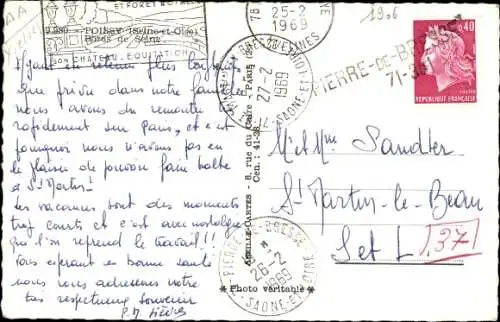 ET FORÊT
SON CHATEAU - EQUITATION
25-2
1969
1906
9.280 - POISSY (Seine-et-Oise)
Bords de Seine
Ayant été retenu plus longtemps
que prévu dans notre famille
nous avons dû remonter
rapidement sur Paris, et c'est
pourquoi nous n'avons pas eu
le plaisir de pouvoir faire halte
à St Martin!
Les vacances sont des moments
trop courts et c'est avec nostalgie
que l'on reprend le travail!!
Vous espérant en bonne santé
nous vous adressons notre
très respectueux souvenir
ABEILLE-CARTES - 8, rue du Caire - PARIS
Cen. : 41-28
* Photo véritable *
27-2
1969
SAONE-ET-LOIRE
PIERRE-DE-BRESSE
71-
0,40
REPUBLIQUE FRANÇAISE
M et Mme Sandter
St Martin-le-Beau
Jet L
37
PIERRE-DE-BRESSE
26-2
1969
SAONE-ET-LOIRE